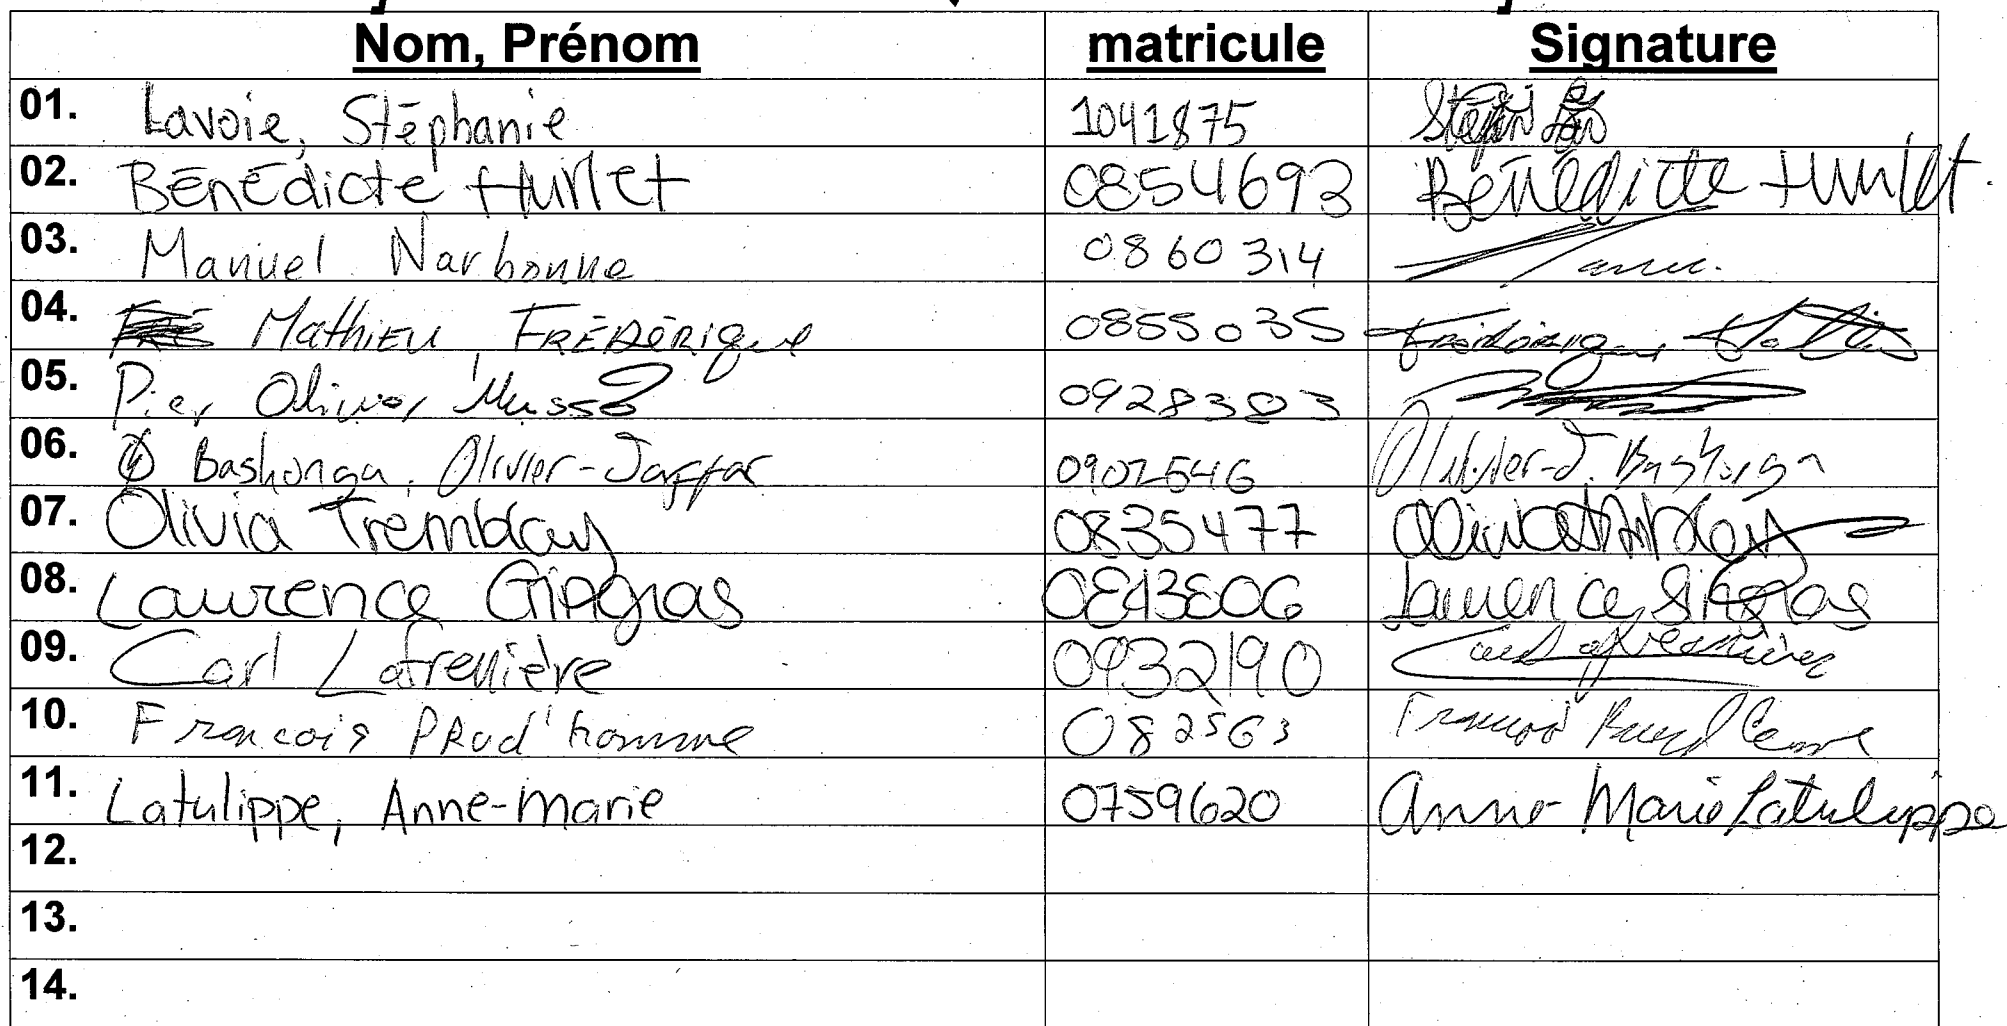 Nom, Prénom matricule Signature
01. Lavoie, Stéphanie 1041875
02. Bénédicte Hurlet 0854693 Bénédicte Hurlet.
03. Manuel Narbonne 0860314
04. Mathieu, FRÉDÉRIQUE 0855035 Frédérique Mathieu
05. Pier Olivier Musso 0928383
06. Bashonga, Olivier-Jaffar 0902546 Olivier-J. Bashonga
07. Olivia Tremblay 0835477 Olivia Tremblay
08. Laurence Gingras 0843806 Laurence Gingras
09. Carl Lafrenière 0932190 Carl Lafrenière
10. François PRud'homme 082563 François Prud'homme
11. Latulippe, Anne-Marie 0759620 Anne-Marie Latulippe
12.
13.
14.